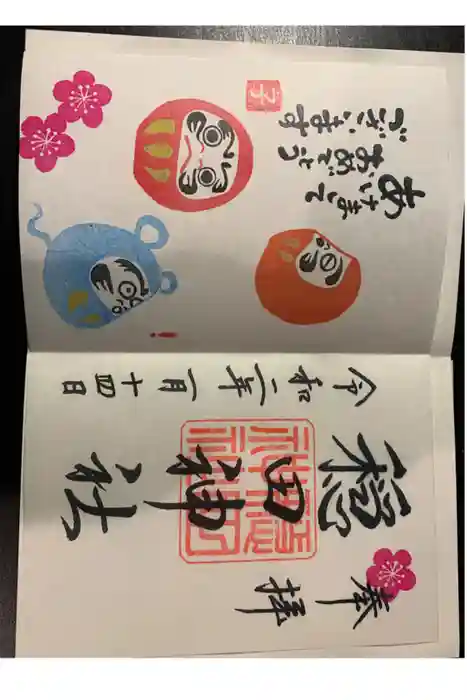 奉拝
穏田神社
令和二年一月十四日
あけまして
おめでとう
ございます
子